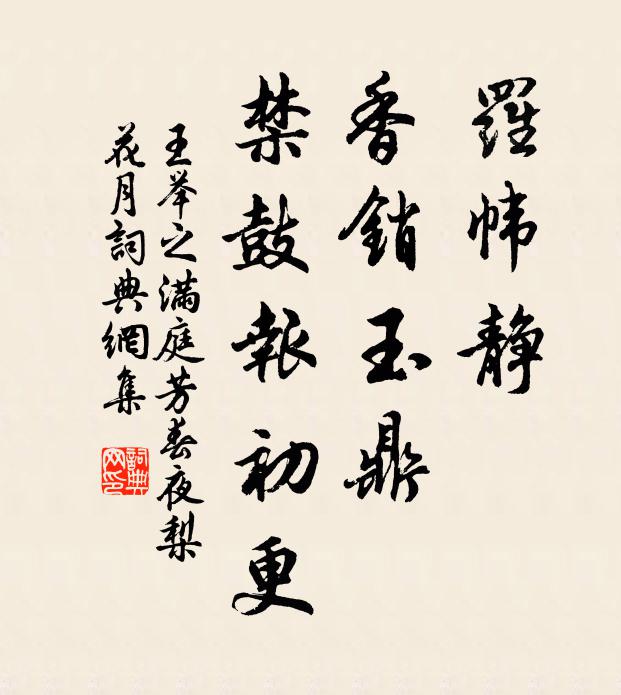 羅幃静
香銷玉鼎
禁鼓報初更
王举之满庭芳春夜梨
花月詞典網集
詞典
网印